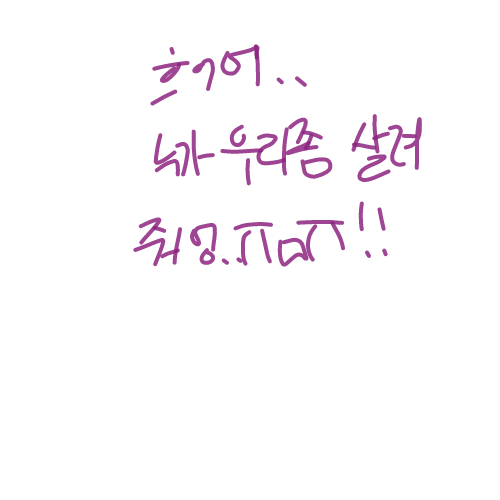 흐어어..
누가 우리좀 살려
줘엉..ㅠㅁㅠ!!